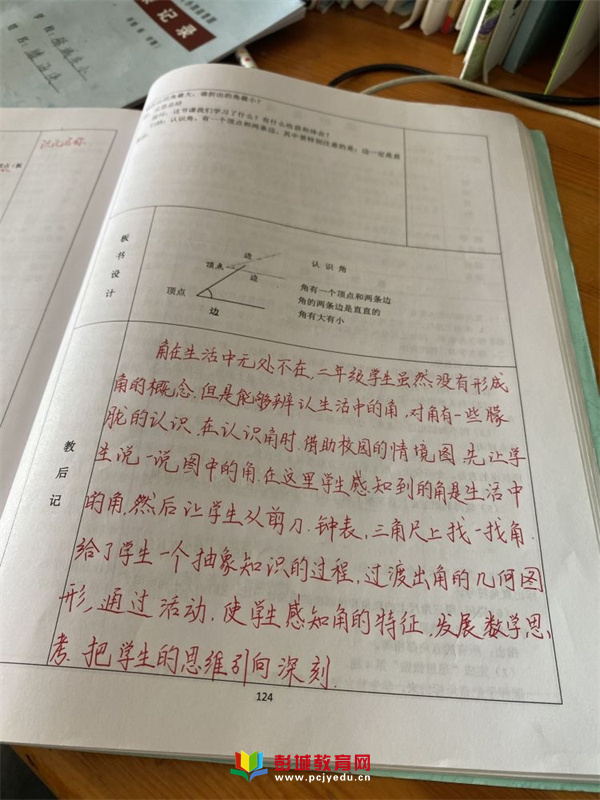 记录
识记名称
角最大，谁折出的角最小？
总结
这节课我们学习了什么？有什么收获和体会？
认识角，有一个顶点和两条边，其中要特别注意的是：边一定是直
板书设计
边
顶点
边
顶点
边
认识角
角有一个顶点和两条边
角的两条边是直直的
角有大有小
教后记
角在生活中无处不在，二年级学生虽然没有形成
角的概念，但是能够辨认生活中的角，对角有一些朦
胧的认识，在认识角时，借助校园的情境图，先让学
生说一说图中的角，在这里学生感知到的角是生活中
的角，然后让学生从剪刀、钟表，三角尺上找一找角，
给了学生一个抽象知识的过程，过渡出角的几何图
形，通过活动，使学生感知角的特征，发展数学思
考，把学生的思维引向深刻．
124
彭城教育网
www.pcjyedu.cn